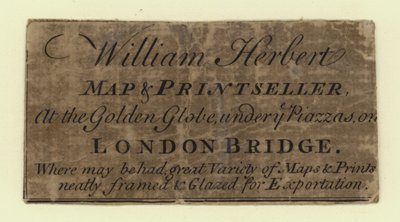 William Herbert
MAP & PRINTSELLER,
At the Golden Globe, under yͤ Piazzas, on
LONDON BRIDGE.
Where may be had, great Variety of Maps & Prints
neatly framed & Glazed for Exportation.